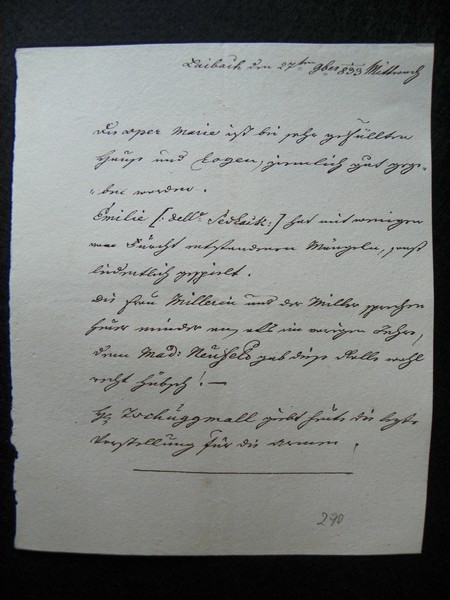 Laibach den 27ten 9ber 833 Mittwoch
Die oper Marie ist bei sehr gefüllten
Hause und Logen, ziemlich gut gege-
ben worden.
Emilie [: dell. Sedlak :] hat mit wenigen
aus Furcht entstandenen Mängeln, sonst
ordentlich gespielt.
die Frau Millerin und der Miller sprechen
heuer minder an, als im vorigen Jahre,
denn Mad: Neufeld gab diese Rolle wohl
recht hübsch! —
H. Tschuggmall giebt heute die letzte
Vorstellung für die Armen.
290